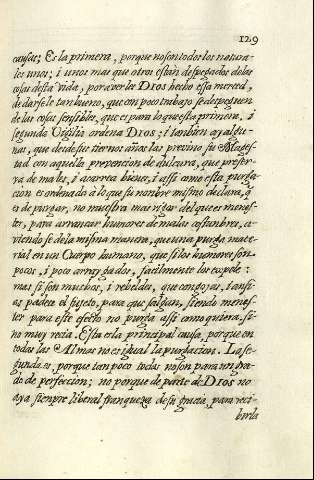 129
causas; Es la primera, porque no son todos los natura-
les unos; i unos mas que otros están despegados de las
cosas desta vida, por averles DIOS hecho essa merced,
de darsele tan bueno, que con poco trabajo se despeguen
de las cosas sensibles, que es para lo que esta primera, i
segunda Vigilia ordena DIOS; i tanbien ay algu-
nas, que desde sus tiernos años las previno su Mages-
tad con aquella prevencion de dulcura, que preser-
va de males, i acarrea bienes, i assi como esta purga-
cion es ordenada à lo que su nonbre mismo declara, q
es de purgar, no muestra mas rigor del que es menes-
ter, para arrancar humores de malas costunbres, a-
viendose de la misma manera, que una purga mate-
rial en un Cuerpo humano, que si los humores son
pocos, i poco arraygados, facilmente los expele:
mas si son muchos, i rebeldes, que congojas, i ansi-
as padece el sujeto, para que salgan, siendo menes-
ter para este efeto no purga assi como quiera, si-
no muy recia. Esta es la principal causa, porque en
todas las Almas no es igual la purgacion. La se-
gunda es, porque tanpoco todas no son para un gra-
do de perfeccion; no porque de parte de DIOS no
aya sienpre liberal franqueza de su gracia, para reci-
birla